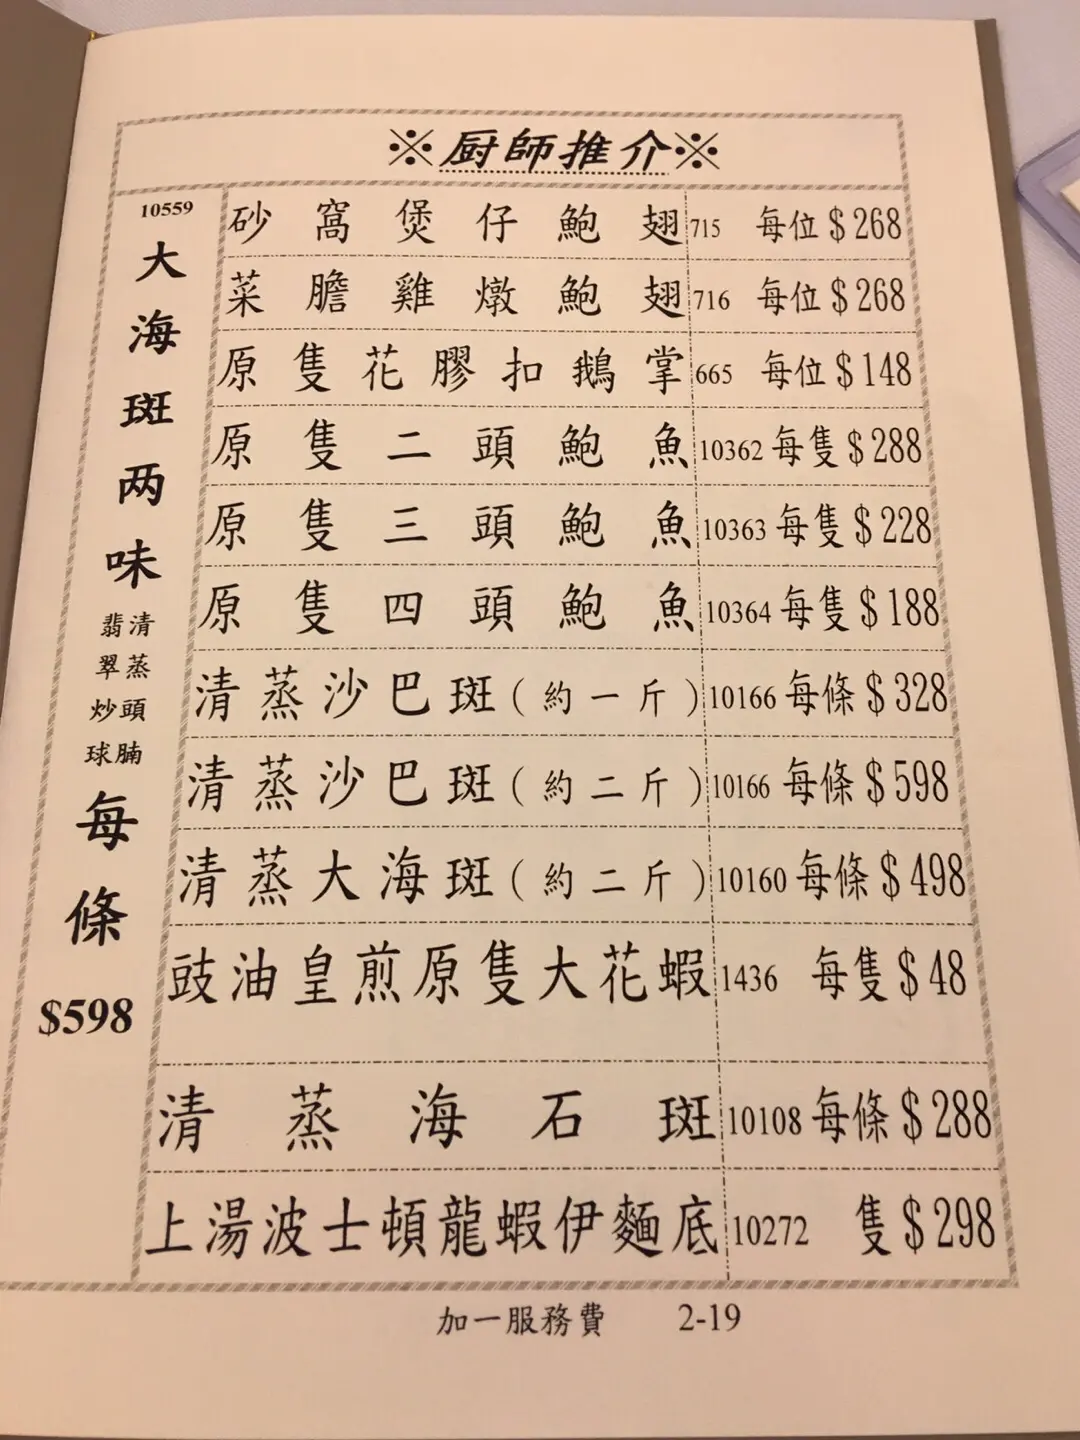 ※厨師推介※
10559
大海斑两味
清蒸頭腩
翡翠炒球
每條
$598
砂窩煲仔鮑翅 715 每位$268
菜膽雞燉鮑翅 716 每位$268
原隻花膠扣鵝掌 665 每位$148
原隻二頭鮑魚 10362 每隻$288
原隻三頭鮑魚 10363 每隻$228
原隻四頭鮑魚 10364 每隻$188
清蒸沙巴斑(約一斤) 10166 每條$328
清蒸沙巴斑(約二斤) 10166 每條$598
清蒸大海斑(約二斤) 10160 每條$498
豉油皇煎原隻大花蝦 1436 每隻$48
清蒸海石斑 10108 每條$288
上湯波士頓龍蝦伊麵底 10272 隻$298
加一服務費 2-19